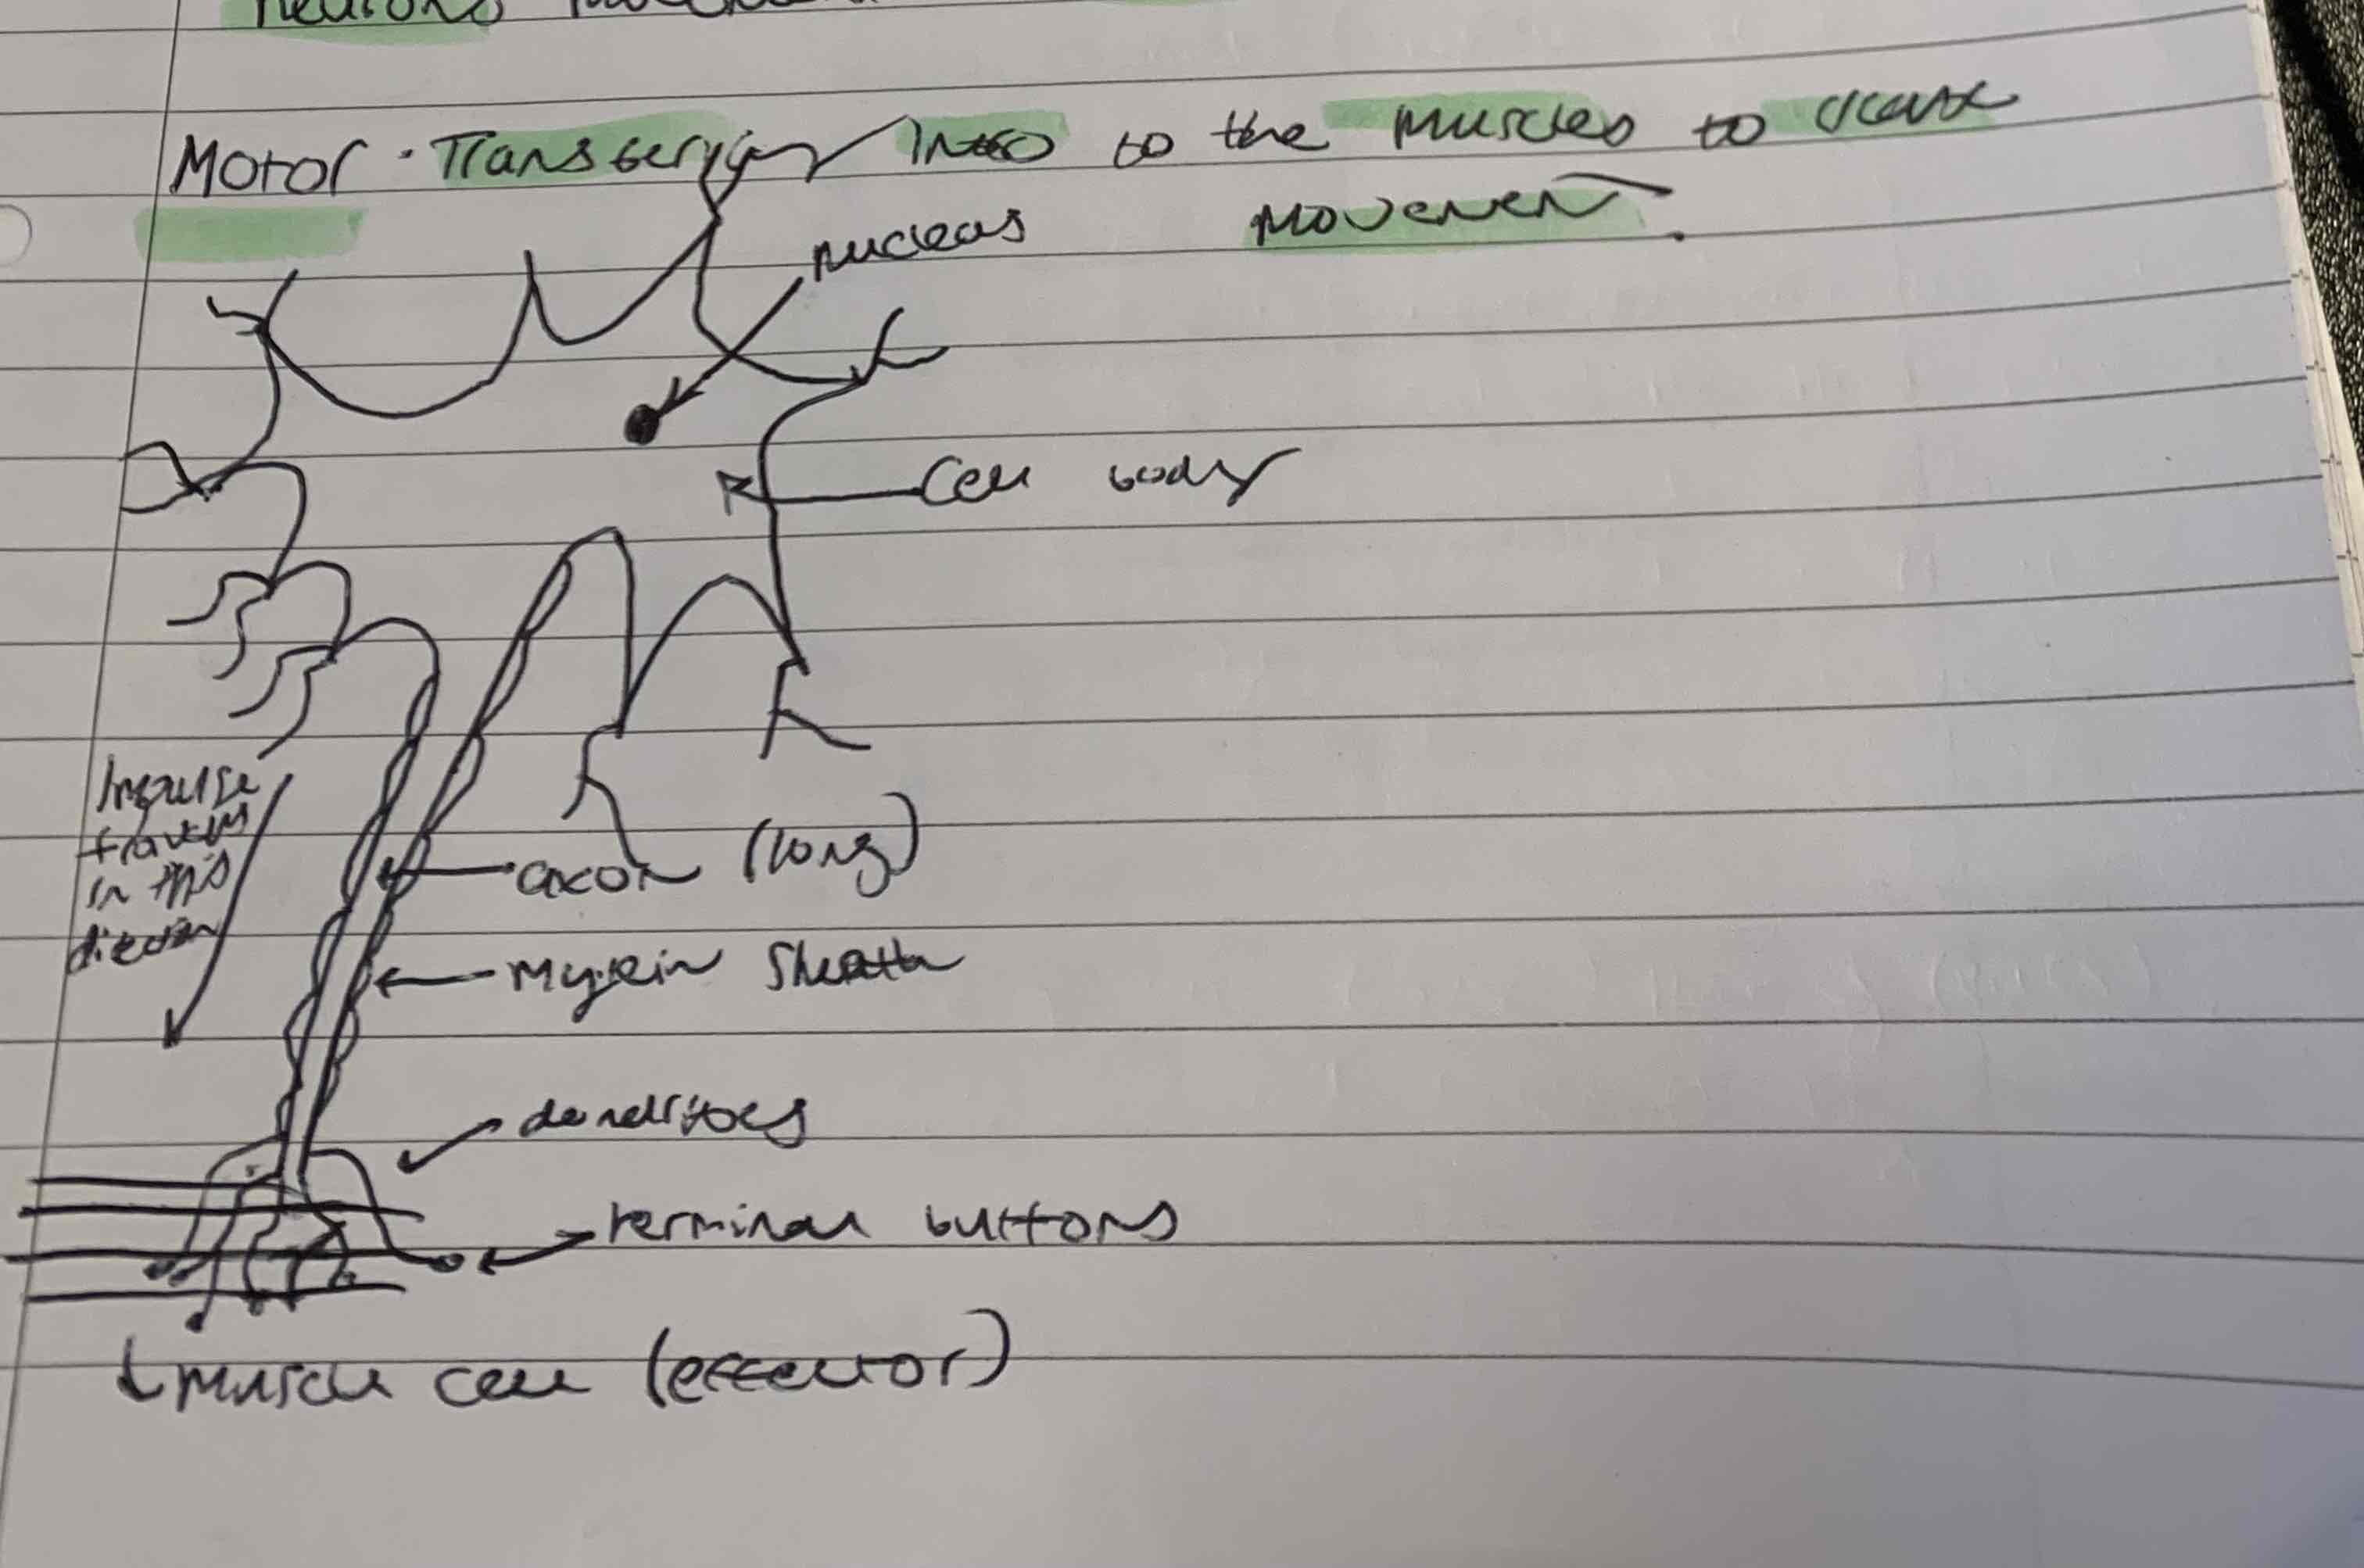 neurons
Motor - Transferring info to the muscles to
movement.
nucleus
Cell body
Impulse
travels
in this
direction
axon (long)
Myelin Sheath
dendrites
terminal buttons
muscle cell (effector)